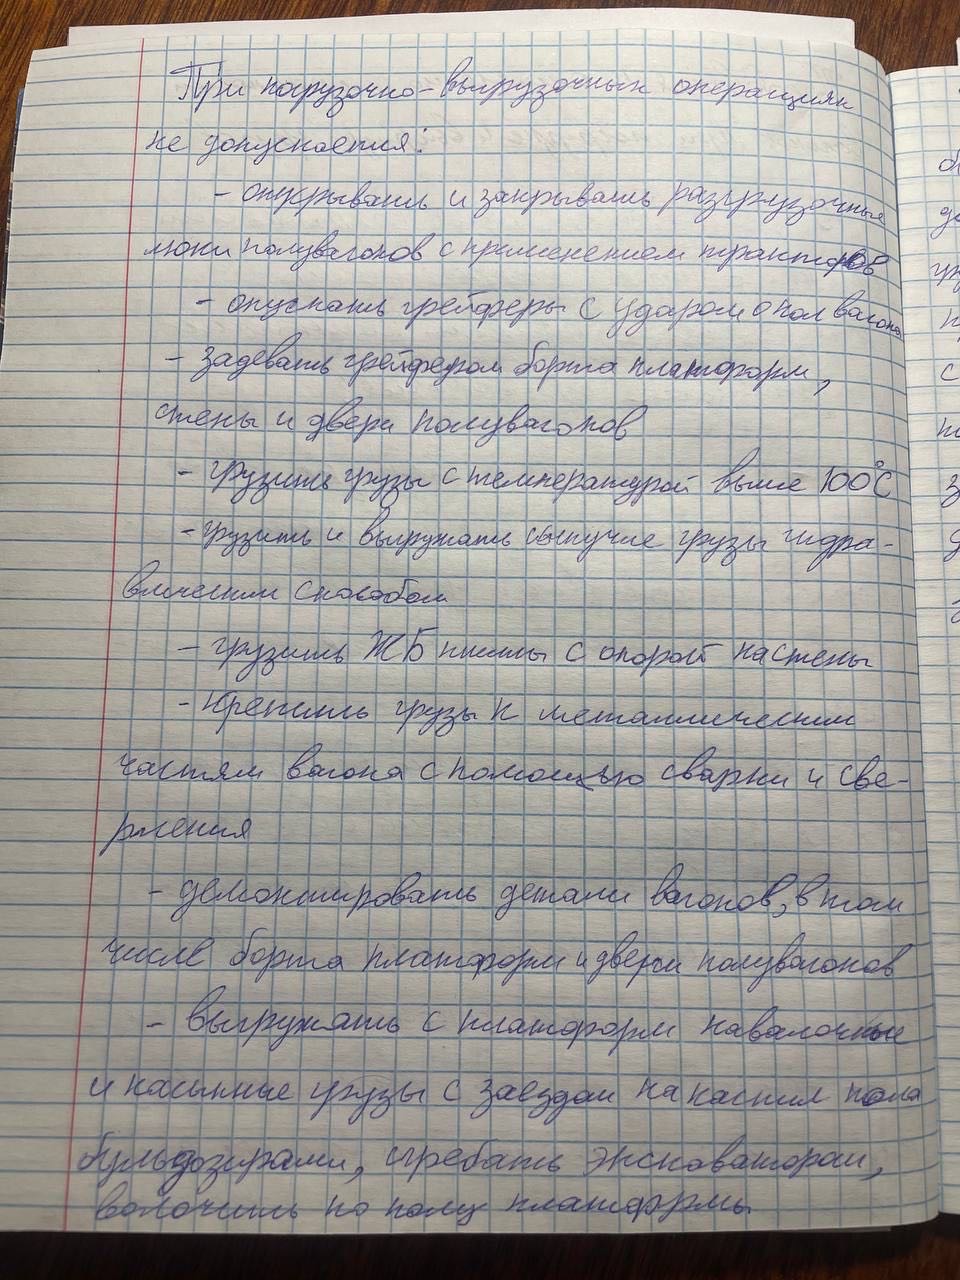 При погрузочно-выгрузочных операциях
не допускается:
- открывать и закрывать разгрузочные
люки полувагонов с применением тракторов
- опускать грейферы с ударом о пол вагона
- задевать грейфером борта платформ,
стены и двери полувагонов
- грузить грузы с температурой выше 100°C
- грузить и выгружать сыпучие грузы гидра-
влическим способом
- грузить ЖБ плиты с опорой на стены
- крепить грузы к металлическим
частям вагона с помощью сварки и све-
рления
- демонтировать детали вагонов, в том
числе борта платформ и двери полувагонов
- выгружать с платформ навалочные
и насыпные грузы с заездом на настил пола
бульдозерами, сгребать экскаватором,
волочить по полу платформы